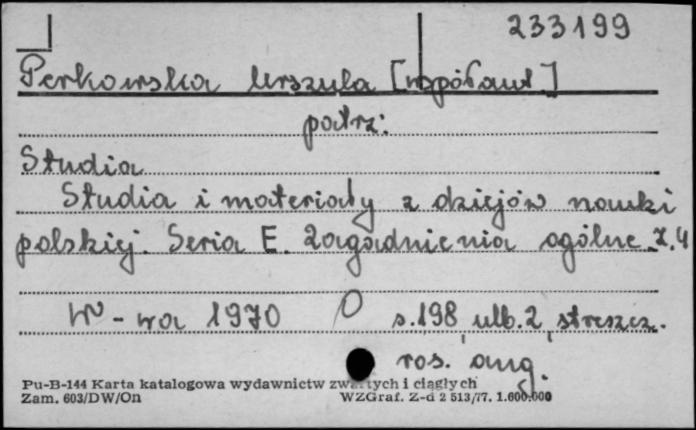 233199
Perkowska Urszula [współaut]
patrz:
Studia
Studia i materiały z dziejów nauki
polskiej. Seria E. Zagadnienia ogólne z. 4
W-wa 1970 s. 198, ulb. 2, streszcz.
ros. ang.
Pu-B-144 Karta katalogowa wydawnictw zwartych i ciągłych
Zam. 603/DW/On WZGraf. Z-d 2 513/77. 1.600.000